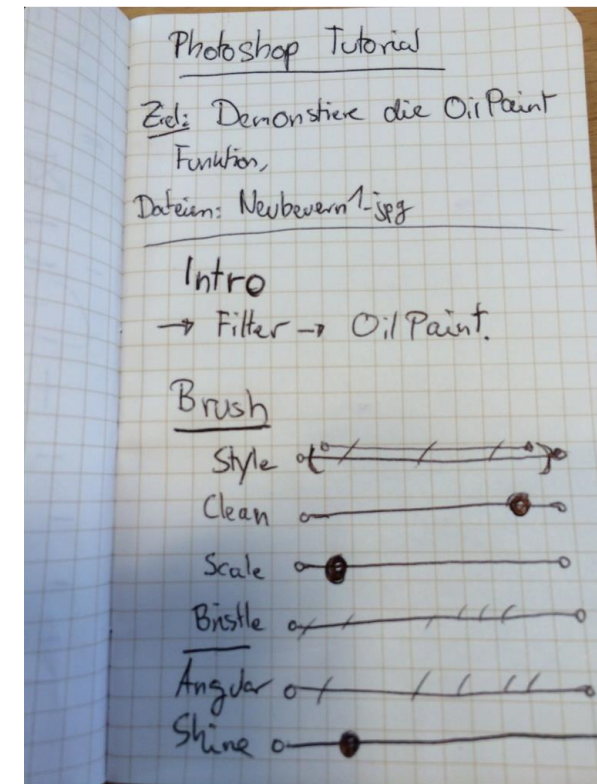 Photoshop Tutorial
Ziel: Demonstiere die OilPaint
Funktion,
Dateien: Neubeuern1.jpg
Intro
→ Filter → Oil Paint.
Brush
Style
Clean
Scale
Bristle
Angular
Shine